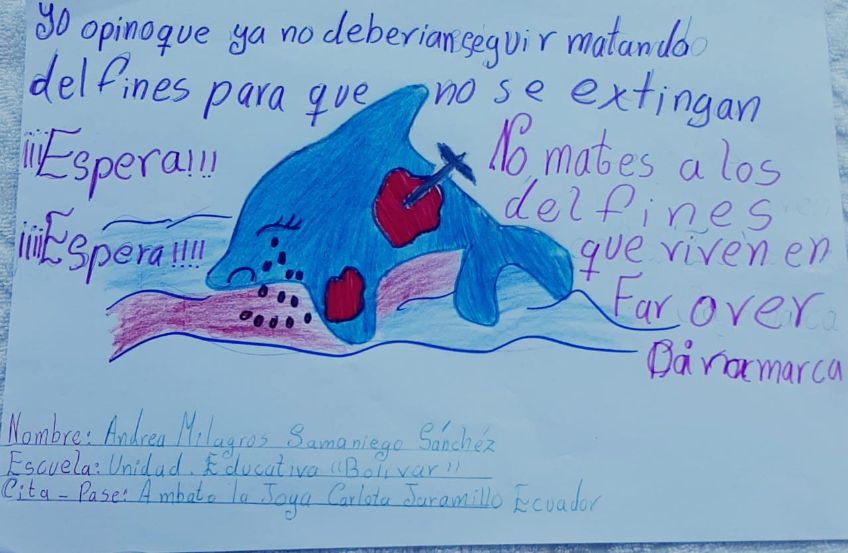 yo opino que ya no deberian seguir matando
delfines para que no se extingan
¡¡¡Espera!!!
¡¡¡¡Espera!!!!
No mates a los
delfines
que viven en
Far over
Dinamarca
Nombre: Andrea Milagros Samaniego Sánchéz
Escuela: Unidad. Educativa "Bolivar"
Cita-Pase: Ambato la Joya Carlota Jaramillo Ecuador